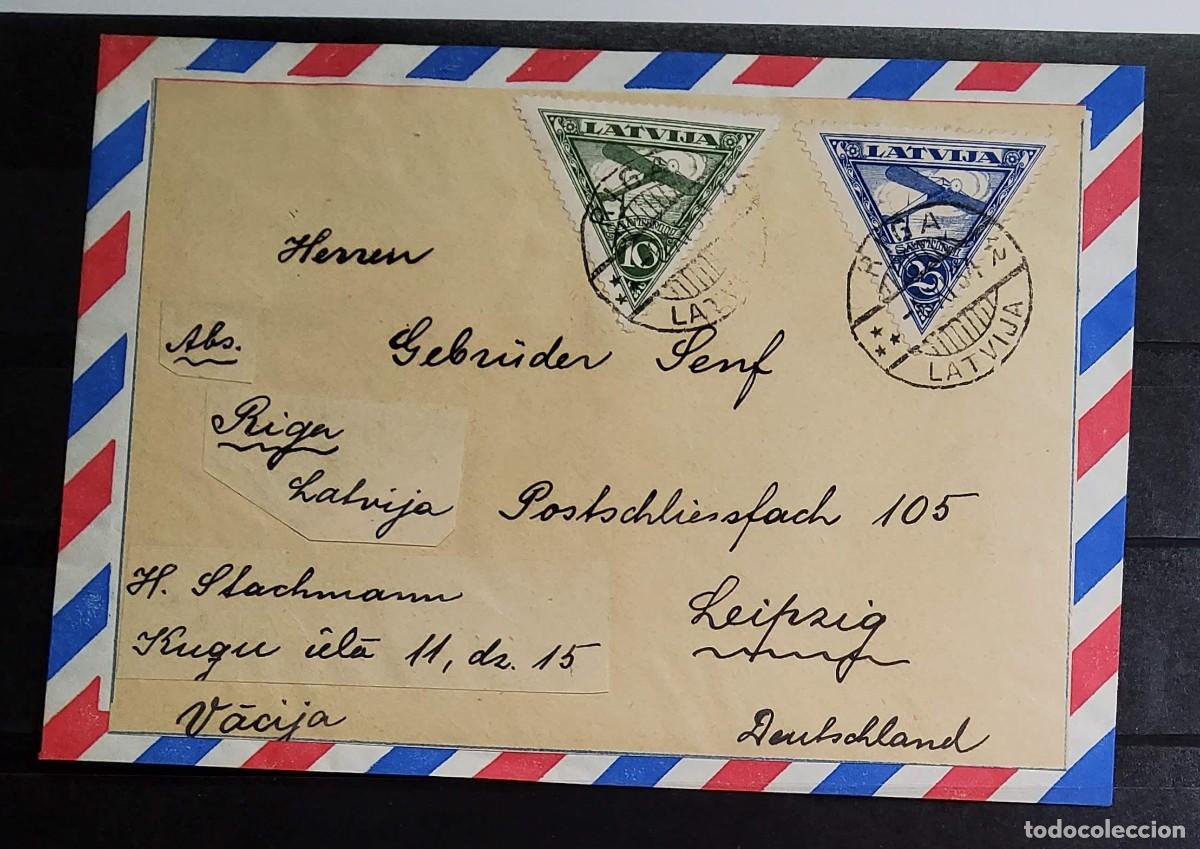 LATVIJA
SANTIMU
10
LATVIJA
SANTIMU
25
RIGA
LATVIJA
RIGA
LATVIJA
Herren
Abs.
Gebrüder Senf
Riga
Latvija
Postschliessfach 105
H. Stachmann
Leipzig
Kugu ielā 11, dz. 15
Vācija
Deutschland
todocoleccion